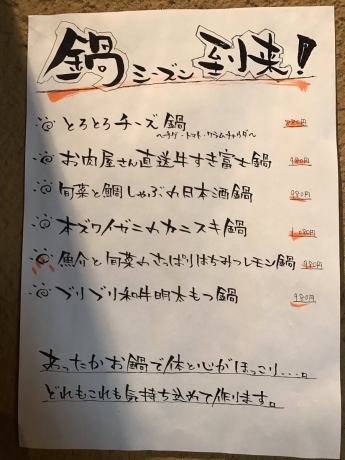 鍋シーズン到来!
とろとろチーズ鍋 880円
〜チゲ・トマト・クラムチャウダー〜
お肉屋さん直送牛すき富士鍋 980円
旬菜と鯛しゃぶの日本酒鍋 980円
本ズワイガニのカニスキ鍋 1,080円
魚介と旬菜のさっぱりはちみつレモン鍋 980円
プリプリ和牛明太もつ鍋 980円
あったかお鍋で体と心がほっこり....。
どれもこれも気持ち込めて作ります。